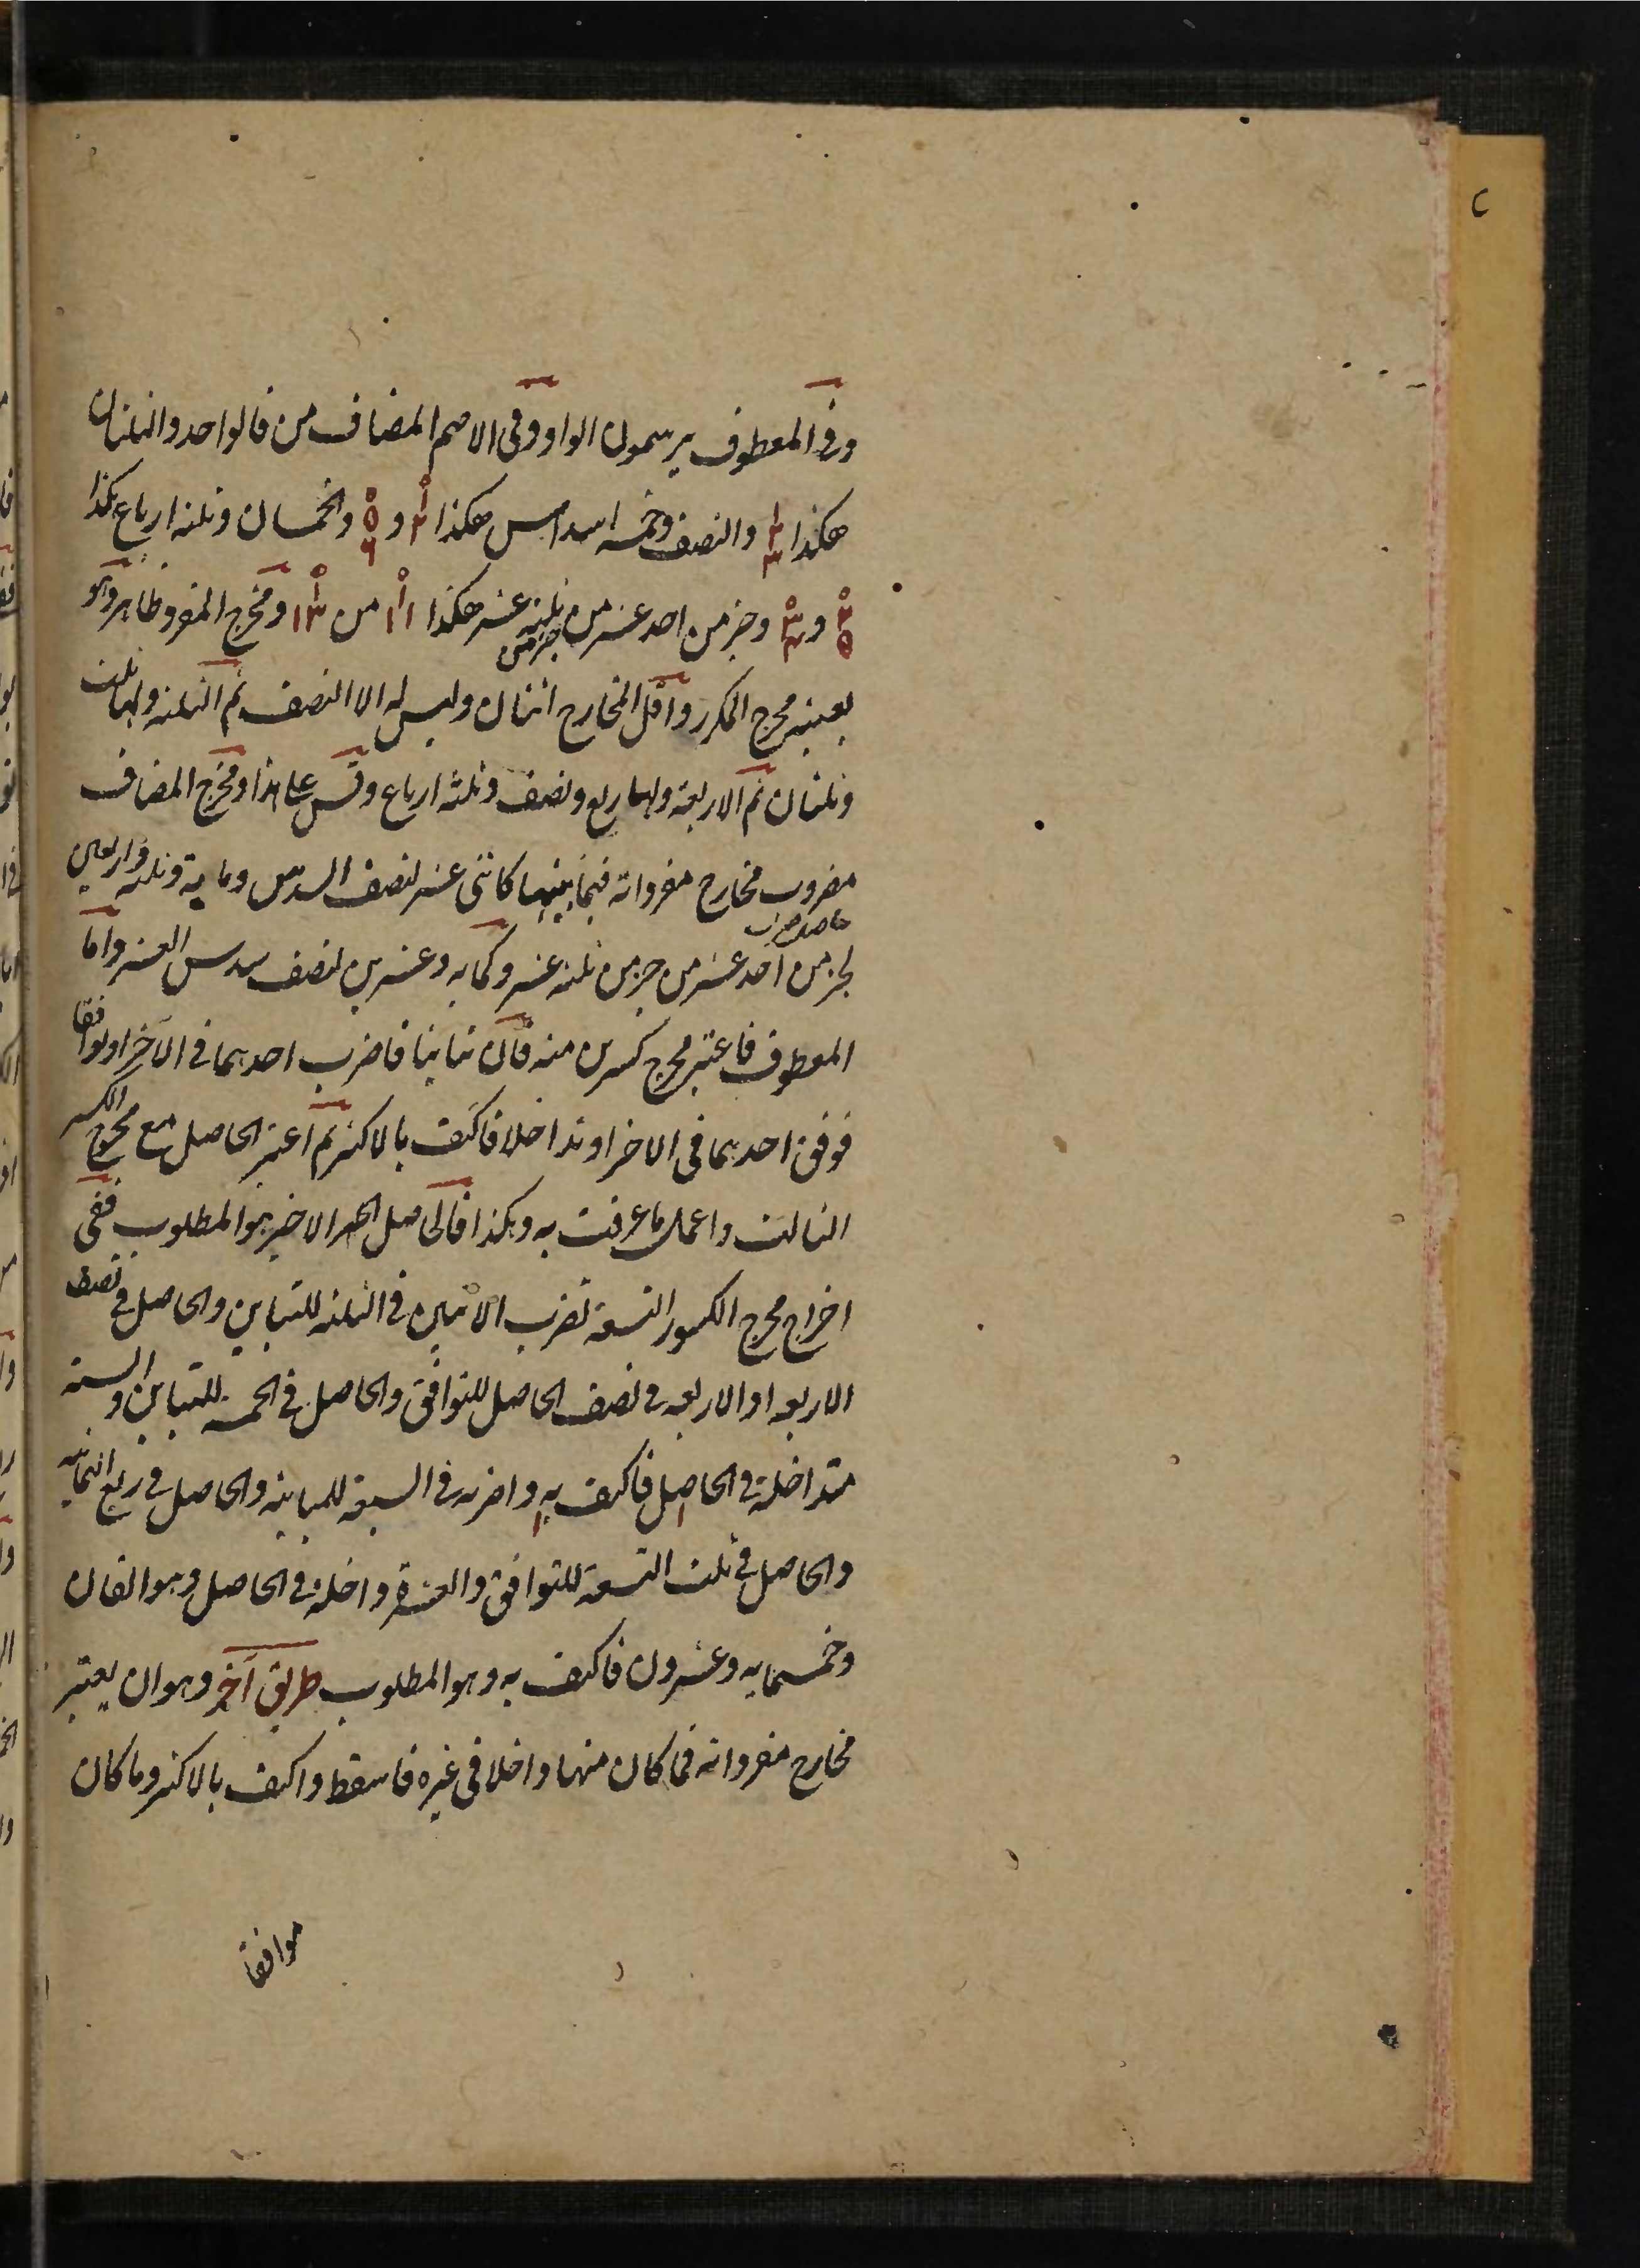 وفى المعطوف يرسمون الواو وفى الاصم المضاف من فالواحد والثلثان
هكذا ١ ٢ ٣ والنصف وخمسة اسداس هكذا ٠ ١ ٢ و ٠ ٥ ٦ والخمسان وثلثة ارباع هكذا
٠ ٢ ٥ و ٠ ٣ ٤ وجزء من احد عشر من ثلثة عشر هكذا ٠ ١ ١١ من ٠ ١ ١٣ ومخرج المفرد ظاهر وهو
جزء من
بعينه مخرج المكرر واقل المخارج اثنان وليس له الا النصف ثم الثلثة ولها ثلث
وثلثان ثم الاربعة ولها ربع ونصف وثلثة ارباع وقس على هذا ومخرج المضاف
مضروب مخارج مفرداته فيما بينها كاثنى عشر لنصف السدس ومایة وثلثة واربعين
حاصل ضرب
لجزء من احد عشر من جزء من ثلثة عشر وكمایه وعشرين لنصف سدس العشر واما
المعطوف فاعتبر مخرج كسرين منه فان تباينا فاضرب احدهما فى الآخر او توافقا
فوفق احدهما فى الاخر او تداخلا فاكتف بالاكثر ثم اعتبر الحاصل مع مخرج الكسر
الثالث واعمل ما عرفت به وهكذا فالحاصل الاخير هو المطلوب ففى
اخراج مخرج الكسور التسعة تضرب الاثنين فى الثلثة للتباين والحاصل فى نصف
الاربعه او الاربعه فى نصف الحاصل للتوافق والحاصل فى الخمسة للتباين والستة
متداخلة فى الحاصل فاكتف به واضربه فى السبعة للمباينة والحاصل فى ربع الثمانیه
والحاصل فى ثلث التسعة للتوافق والعشرة داخلة فى الحاصل وهو الفان
وخمسمایه وعشرون فاكتف به وهو المطلوب طريق آخر وهو ان يعتبر
مخارج مفرداته فما كان منها داخلا فى غيره فاسقط واكتف بالاكثر وما كان
موافقا